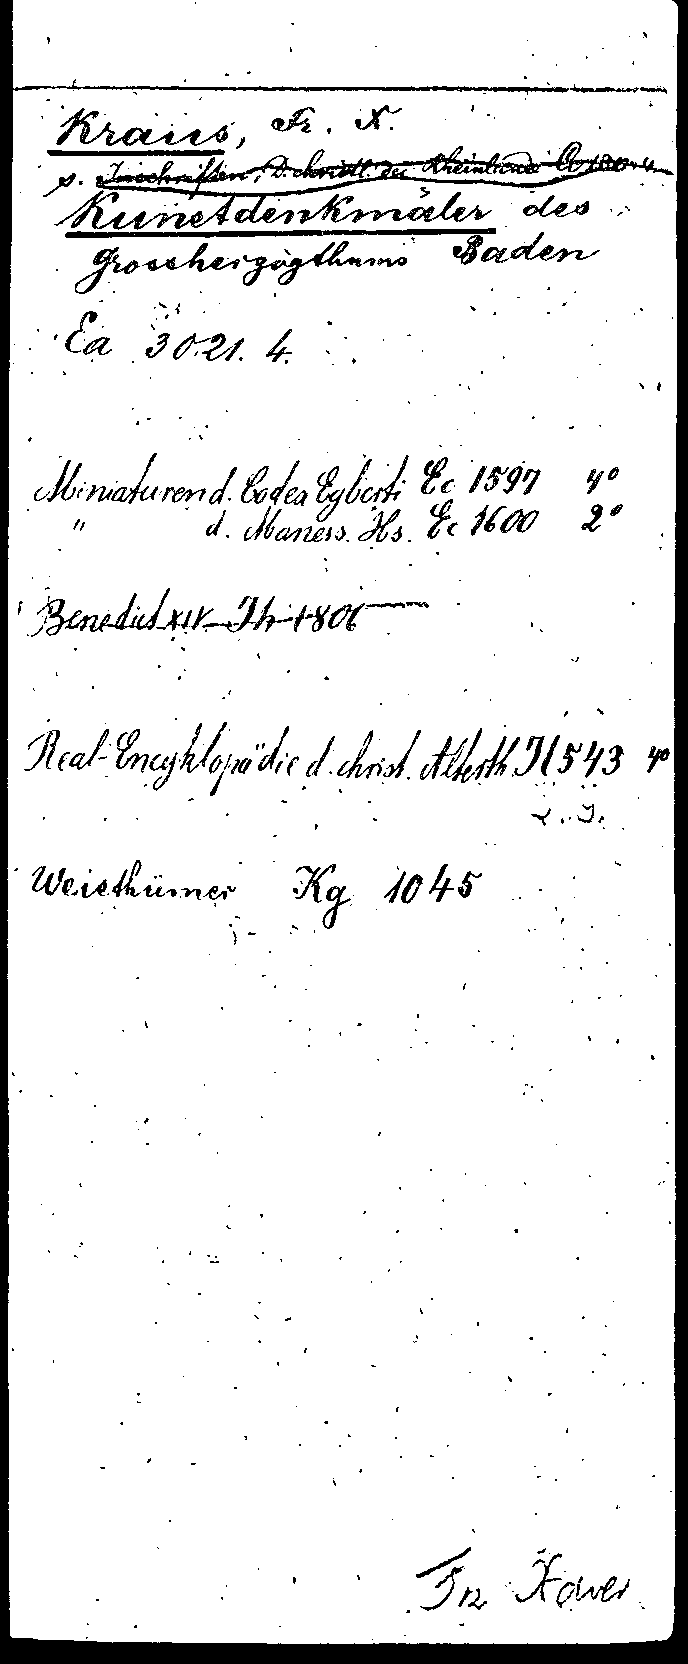 Kraus, Fr. X.
s. Inschriften, D. christl. der Rheinlande
Kunstdenkmäler des
Grossherzogthums Baden
Ea 3021. 4.
Miniaturen d. Codex Egberti Ec 1597 4°
" d. Maness. Hs. Ec 1600 2°
Benedict XIV Th 1806
Real-Encyklopädie d. christ. Alterth. H 543 4°
L. S.
Weisthümer Kg 1045
Frz Xaver